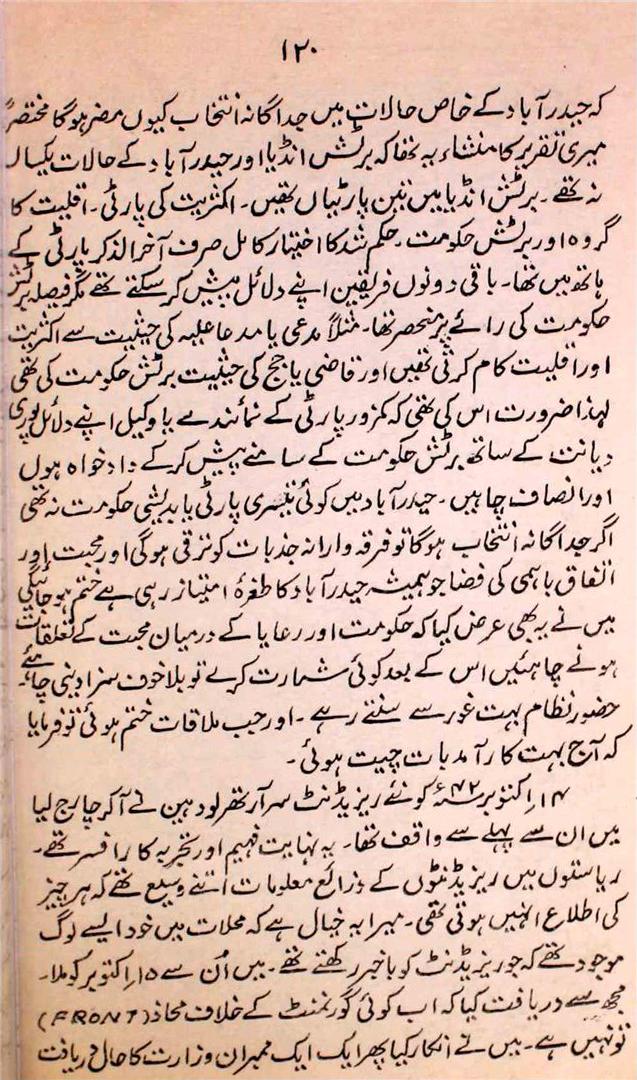 ۱۲۰
کہ حیدرآباد کے خاص حالات میں جداگانہ انتخاب کیوں مضر ہوگا مختصراً
میری تقریر کا منشاء یہ تھا کہ برٹش انڈیا اور حیدرآباد کے حالات یکساں
نہ تھے۔ برٹش انڈیا میں تین پارٹیاں تھیں۔ اکثریت کی پارٹی۔ اقلیت کا
گروہ اور برٹش حکومت۔ حکم شد کا اختیار کامل صرف آخر الذکر پارٹی کے
ہاتھ میں تھا۔ باقی دونوں فریقین اپنے دلائل پیش کرسکتے تھے مگر فیصلہ برٹش
حکومت کی رائے پر منحصر تھا۔ مثلاً مدعی یا مدعا علیہ کی حیثیت سے اکثریت
اور اقلیت کام کرتی تھیں اور قاضی یا جج کی حیثیت برٹش حکومت کی تھی
لہذا ضرورت اس کی تھی کہ کمزور پارٹی کے نمائندے یا وکیل اپنے دلائل پوری
دیانت کے ساتھ برٹش حکومت کے سامنے پیش کرکے دادخواہ ہوں
اور انصاف چاہیں۔ حیدرآباد میں کوئی تیسری پارٹی یا بدیشی حکومت نہ تھی
اگر جداگانہ انتخاب ہوگا تو فرقہ وارانہ جذبات کو ترقی ہوگی اور محبت اور
اتفاق باہمی کی فضا جو ہمیشہ حیدرآباد کا طغرۂ امتیاز رہی ہے ختم ہو جائیگی
میں نے یہ بھی عرض کیا کہ حکومت اور رعایا کے درمیان محبت کے تعلقات
ہونے چاہئیں اس کے بعد کوئی شمارت کرے تو بلا خوف سزا دینی چاہئے۔
حضور نظام بہت غور سے سنتے رہے۔ اور جب ملاقات ختم ہوئی تو فرمایا
کہ آج بہت کارآمد بات چیت ہوئی۔
۱۴؍ اکتوبر سنہ ۴۲ء کو نئے ریزیڈنٹ سر آرتھر لودہین نے آکر چارج لیا
میں ان سے پہلے سے واقف تھا۔ یہ نہایت فہیم اور تجربہ کار افسر تھے۔
ریاستوں میں ریزیڈنٹوں کے ذرائع معلومات اتنے وسیع تھے کہ ہر چیز
کی اطلاع انہیں ہوتی تھی۔ میرا یہ خیال ہے کہ محلات میں خود ایسے لوگ
موجود تھے کہ جو ریزیڈنٹ کو باخبر رکھتے تھے۔ میں اُن سے ۱۵؍ اکتوبر کو ملا۔
مجھ سے دریافت کیا کہ اب کوئی گورنمنٹ کے خلاف محاذ (FRONT)
تو نہیں ہے۔ میں نے انکار کیا پھر ایک ایک ممبران وزارت کا حال دریافت